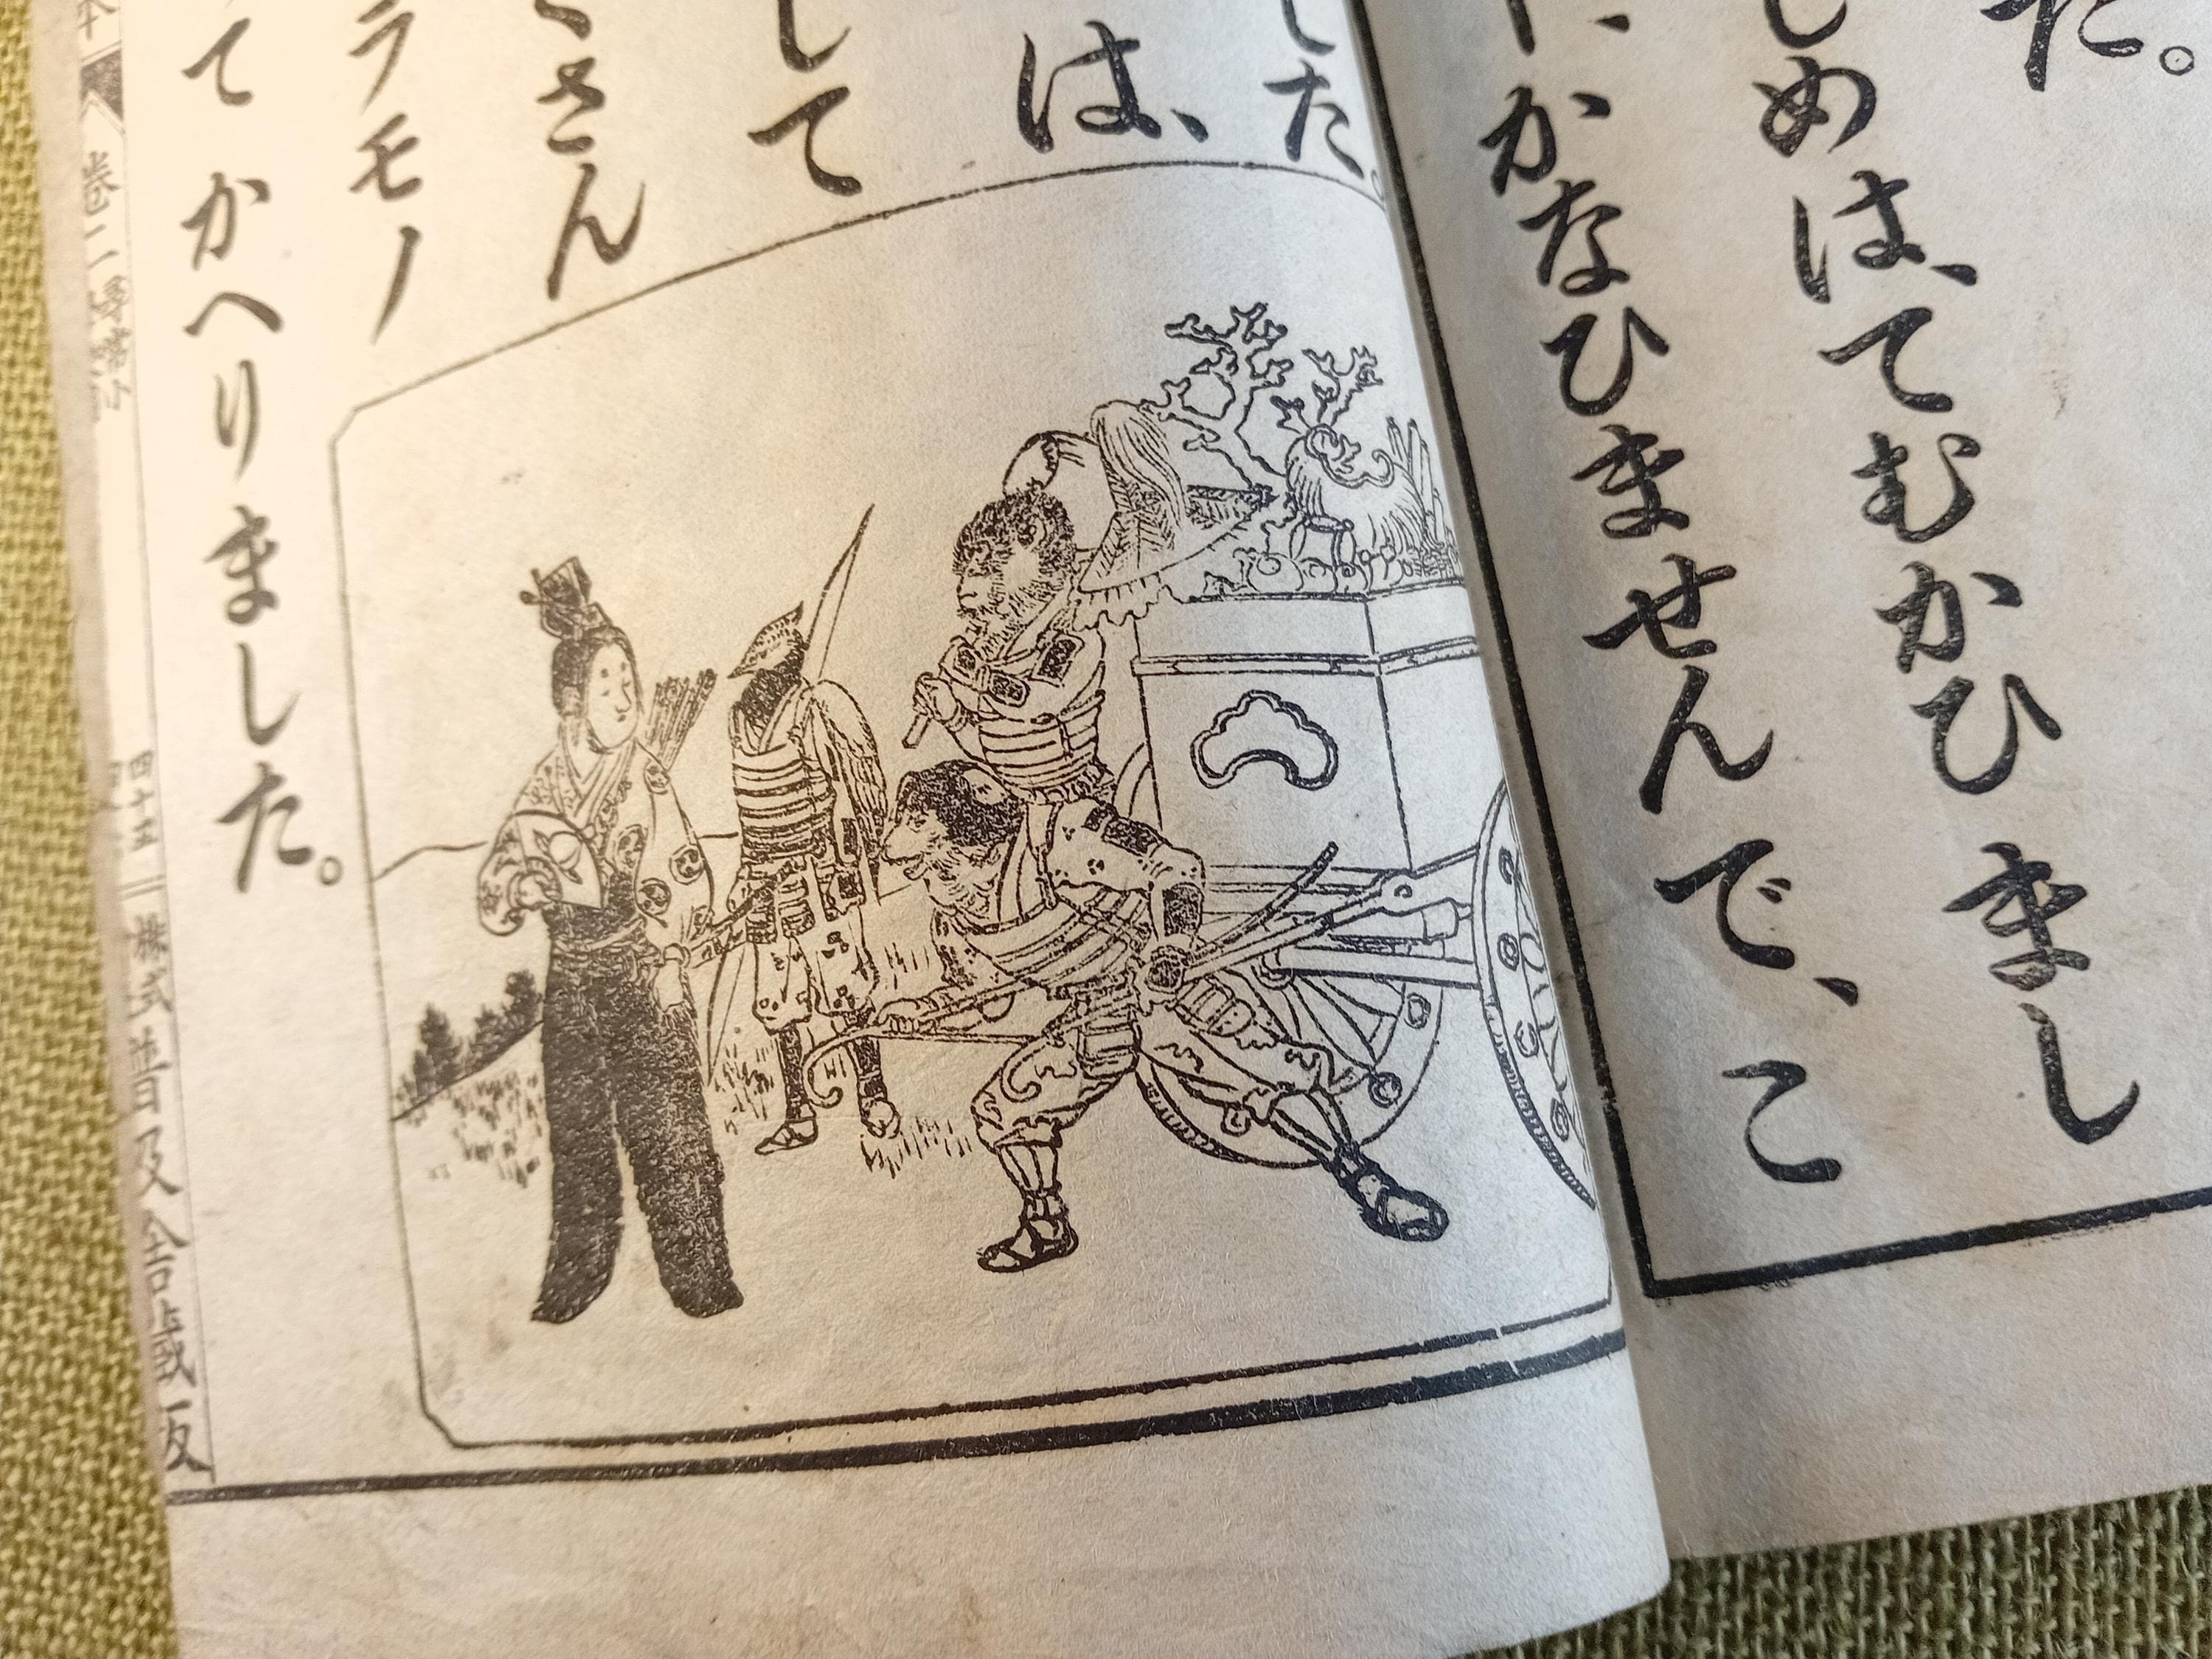 た。
しめは、てむかひまし
かなひませんで、こ
した。
は、
して
さん
ラモノ
てかへりました。
本 卷二 尋常小
四十五
株式
普及舍藏版